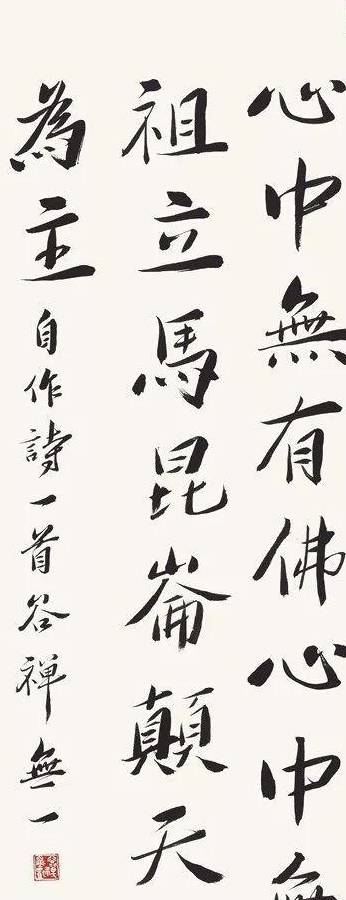 心中無有佛心中無
祖立馬昆崙顛天
為主
自作詩一首谷禅無一